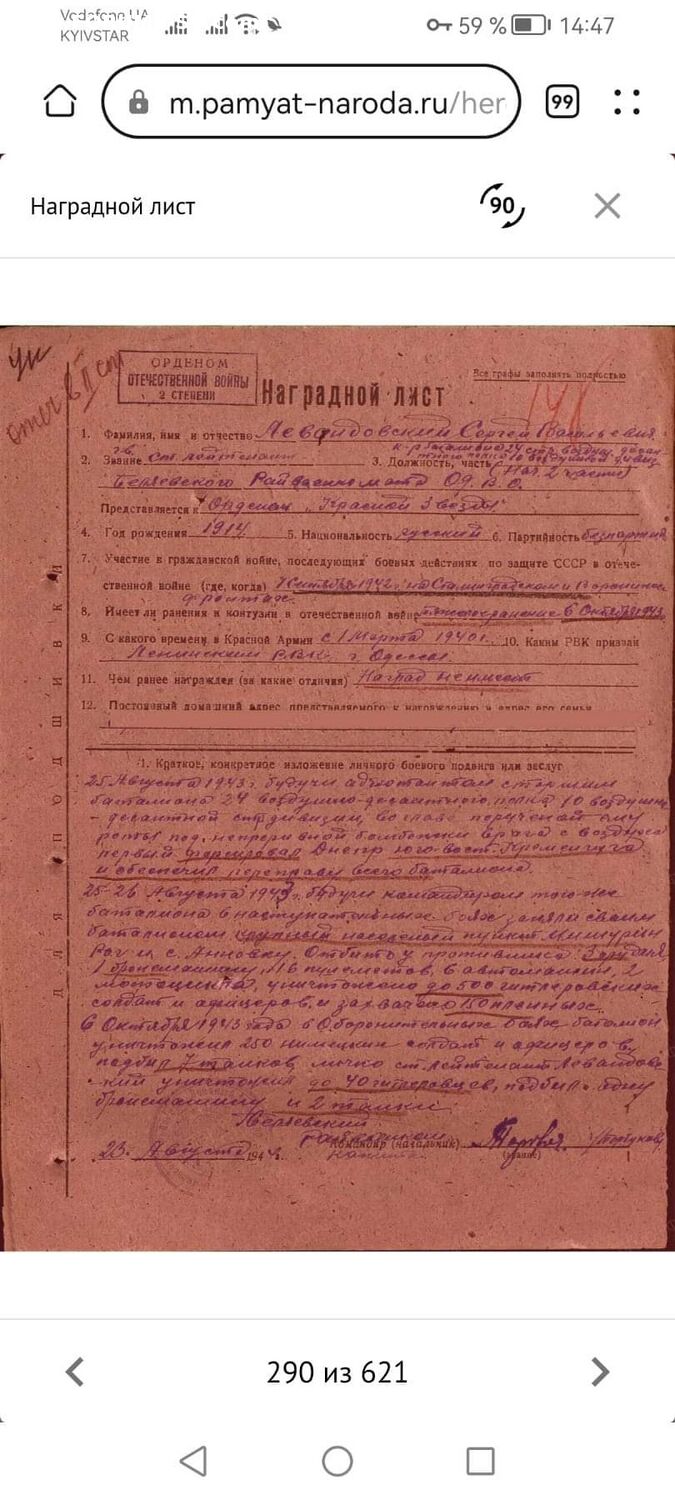 Vodafone UA
KYIVSTAR
59 %
14:47
m.pamyat-naroda.ru/her
99
Наградной лист
90
отеч в II ст
ОРДЕНОМ
ОТЕЧЕСТВЕННОЙ ВОЙНЫ
2 СТЕПЕНИ
Все графы заполнять полностью
Наградной лист
1. Фамилия, имя и отчество Левандовский Сергей Васильевич
2. Звание гв. ст. лейтенант
3. Должность, часть (Нач. 2 части
Беляевского Райвоенкомата Од. В. О.
Представляется к Орденом „Красной Звезды"
4. Год рождения 1914 5. Национальность русский 6. Партийность беспартий
7. Участие в гражданской войне, последующих боевых действиях по защите СССР в отече-
ственной войне (где, когда) Сентября 1942 г. на Сталинградском и Воронежс
фронтах.
8. Имеет ли ранения и контузии в отечественной войне тяжело ранен 6 Октября 1943
9. С какого времени в Красной Армии с 1 Марта 1940 г. 10. Каким РВК призван
Ленинским РВК г. Одесса
11. Чем ранее награжден (за какие отличия) Наград не имеет
12. Постоянный домашний адрес представляемого к награждению и адрес его семьи
1. Краткое, конкретное изложение личного боевого подвига или заслуг
25 Августа 1943 г. будучи адъютантом старшим
батальона 24 воздушно-десантного полка 10 воздушн
- десантной стр дивизии, во главе порученной ему
роты под непрерывной бомбежки врага с воздуха
первый форсировал Днепр юго-вост. Кременчуга
и обеспечил переправу всего батальона.
25-26 Августа 1943 г. будучи командиром того же
батальона в наступательных боях заняли своим
батальоном крупный населеный пункт Мишурин
Рог и с. Анновку. Отбито у противника 3 орудия,
1 бронемашину, 11 пулеметов, 6 автомашин, 2
мотоцикла, уничтожено до 500 гитлеровских
солдат и офицеров, и захвачено 10 пленных.
6 Октября 1943 года в Оборонительных боях батальон
уничтожил 250 немецких солдат и офицеров,
подбил 7 танков лично ст. лейтенант Левандовс
-кий уничтожил до 40 гитлеровцев, подбил одну
бронемашину и 2 танка.
Беляевский
Командир (начальник)
(звание)
23 Августа 1944
ДЛЯ ПОДШИВКИ
290 из 621